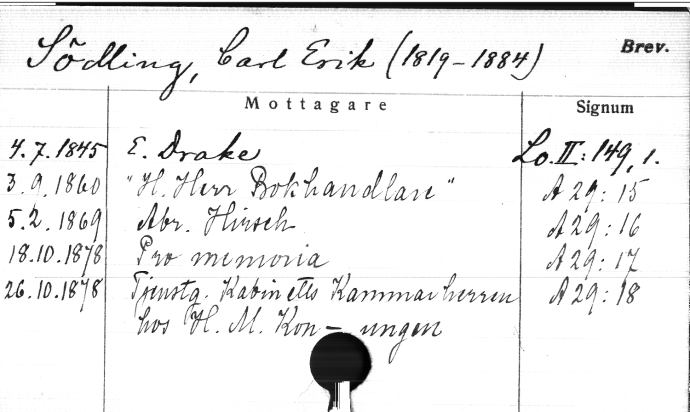 Södling, Carl Erik (1819-1884) Brev.
Mottagare Signum
4.7.1845 E. Drake Lo. II: 149, 1.
3.9.1860 "H. Herr Bokhandlare" A 29: 15
5.2.1869 Abr. Hirsch A 29: 16
18.10.1878 Pro memoria A 29: 17
26.10.1878 Tjenstg. Kabinetts Kammarherren A 29: 18
hos H. M. Kon- ungen